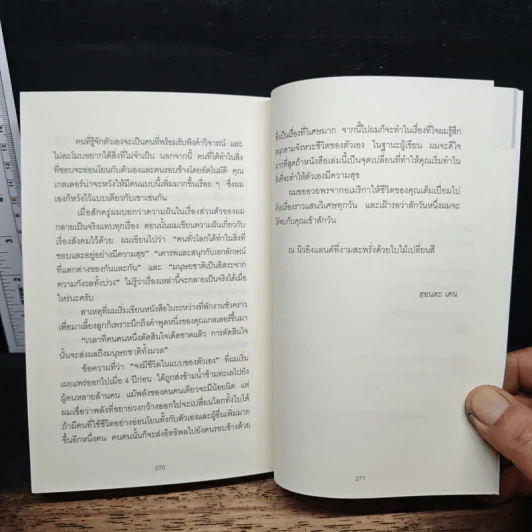 คนที่รู้จักตัวเองจะเป็นคนที่พร้อมรับฟังคำวิจารณ์ และ
ไม่ละโมบอยากได้สิ่งที่ไม่จำเป็น นอกจากนี้ คนที่ได้ทำในสิ่ง
ที่ชอบจะอ่อนโยนกับตัวเองและคนรอบข้างโดยอัตโนมัติ คุณ
เกลเลอร์น่าจะหวังให้มีคนแบบนี้เพิ่มขึ้นเรื่อย ๆ ซึ่งผม
เองก็หวังไว้แบบเดียวกับเขาเช่นกัน
เมื่อสักครู่ผมบอกว่าความฝันในเรื่องส่วนตัวของผม
กลายเป็นจริงแทบทุกเรื่อง ตอนนั้นผมเขียนความฝันเกี่ยวกับ
เรื่องสังคมไว้ด้วย ผมเขียนไปว่า "คนทั่วโลกได้ทำในสิ่งที่
ชอบและอยู่อย่างมีความสุข" "เคารพและสนุกกับเอกลักษณ์
ที่แตกต่างของกันและกัน" และ "มนุษยชาติเป็นอิสระจาก
ความกังวลทั้งปวง" ไม่รู้ว่าเรื่องเหล่านี้จะกลายเป็นจริงได้เมื่อ
ไหร่นะครับ
สาเหตุที่ผมเริ่มเขียนหนังสือในระหว่างที่พักงานชั่วคราว
เพื่อมาเลี้ยงลูกก็เพราะนึกถึงคำพูดหนึ่งของคุณเกลเลอร์ขึ้นมา
"เวลาที่คนคนหนึ่งตัดสินใจเด็ดขาดแล้ว การตัดสินใจ
นั้นจะส่งผลถึงมนุษยชาติทั้งมวล"
ข้อความที่ว่า "จงมีชีวิตในแบบของตัวเอง" ที่ผมเริ่ม
เผยแพร่ออกไปเมื่อ 4 ปีก่อน ได้ถูกส่งข้ามน้ำข้ามทะเลไปยัง
ผู้คนหลายล้านคน แม้พลังของคนคนเดียวจะมีน้อยนิด แต่
ผมเชื่อว่าพลังที่ขยายวงกว้างออกไปจะเปลี่ยนโลกทั้งใบได้
ถ้ามีคนที่ใช้ชีวิตอย่างอ่อนโยนทั้งกับตัวเองและผู้อื่นเพิ่มมาก
ขึ้นอีกหนึ่งคน คนคนนั้นก็จะส่งอิทธิพลไปยังคนรอบข้างด้วย
270
ซึ่งเป็นเรื่องที่วิเศษมาก จากนี้ไปผมก็จะทำในเรื่องที่ใจผมรู้สึก
สนุกตามจังหวะชีวิตของตัวเอง ในฐานะผู้เขียน ผมจะดีใจ
มากที่สุดถ้าหนังสือเล่มนี้เป็นจุดเปลี่ยนที่ทำให้คุณเริ่มทำใน
สิ่งที่จะทำให้ตัวเองมีความสุข
ผมขออวยพรจากอเมริกาให้ชีวิตของคุณเต็มเปี่ยมไป
ด้วยเรื่องราวแสนวิเศษทุกวัน และเฝ้ารอว่าสักวันหนึ่งผมจะ
ได้พบกับคุณเข้าสักวัน
ณ นิวอิงแลนด์ที่งามสะพรั่งด้วยใบไม้เปลี่ยนสี
ฮอนดะ เคน
271